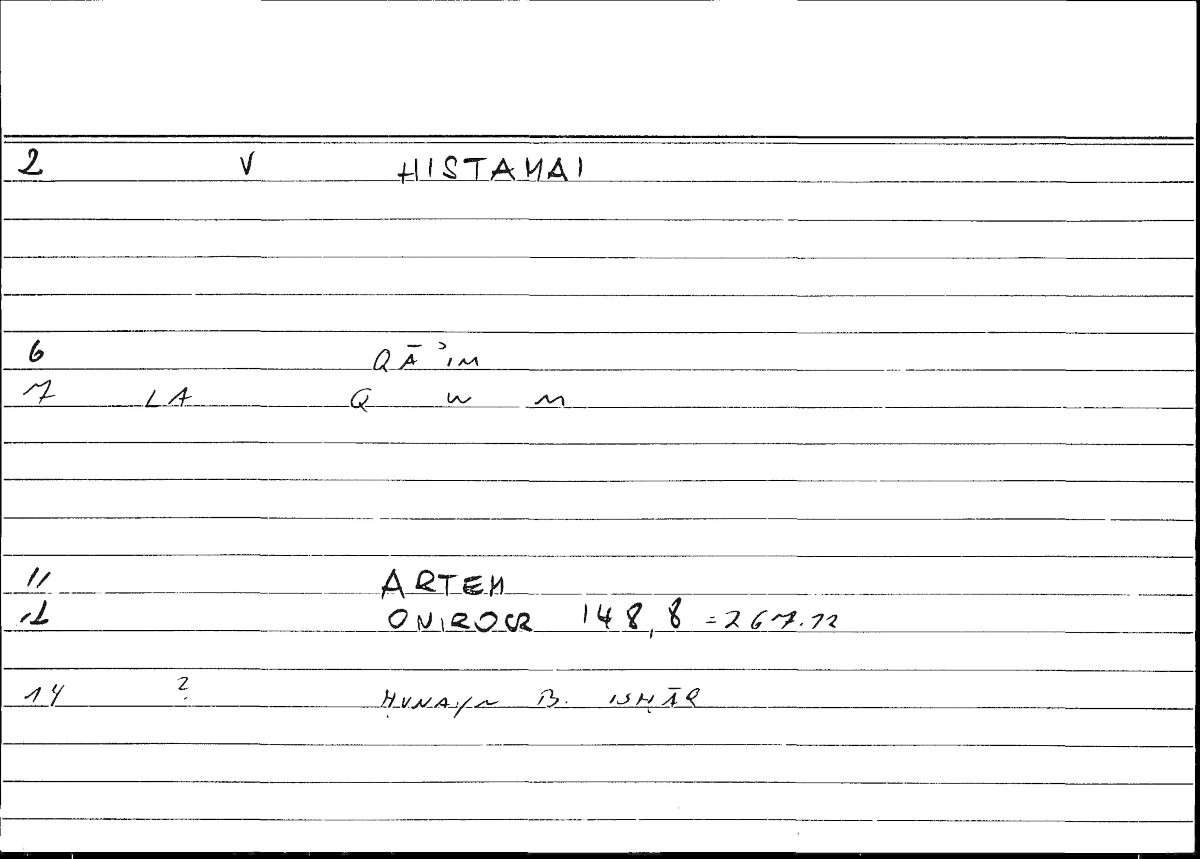 2 V HISTAMAI
6 QĀʾIM
7 LA Q W M
11 ARTEM
12 ONIROCR 148,8 = 267.12
14 ? ḤUNAYN B. ISḤĀQ